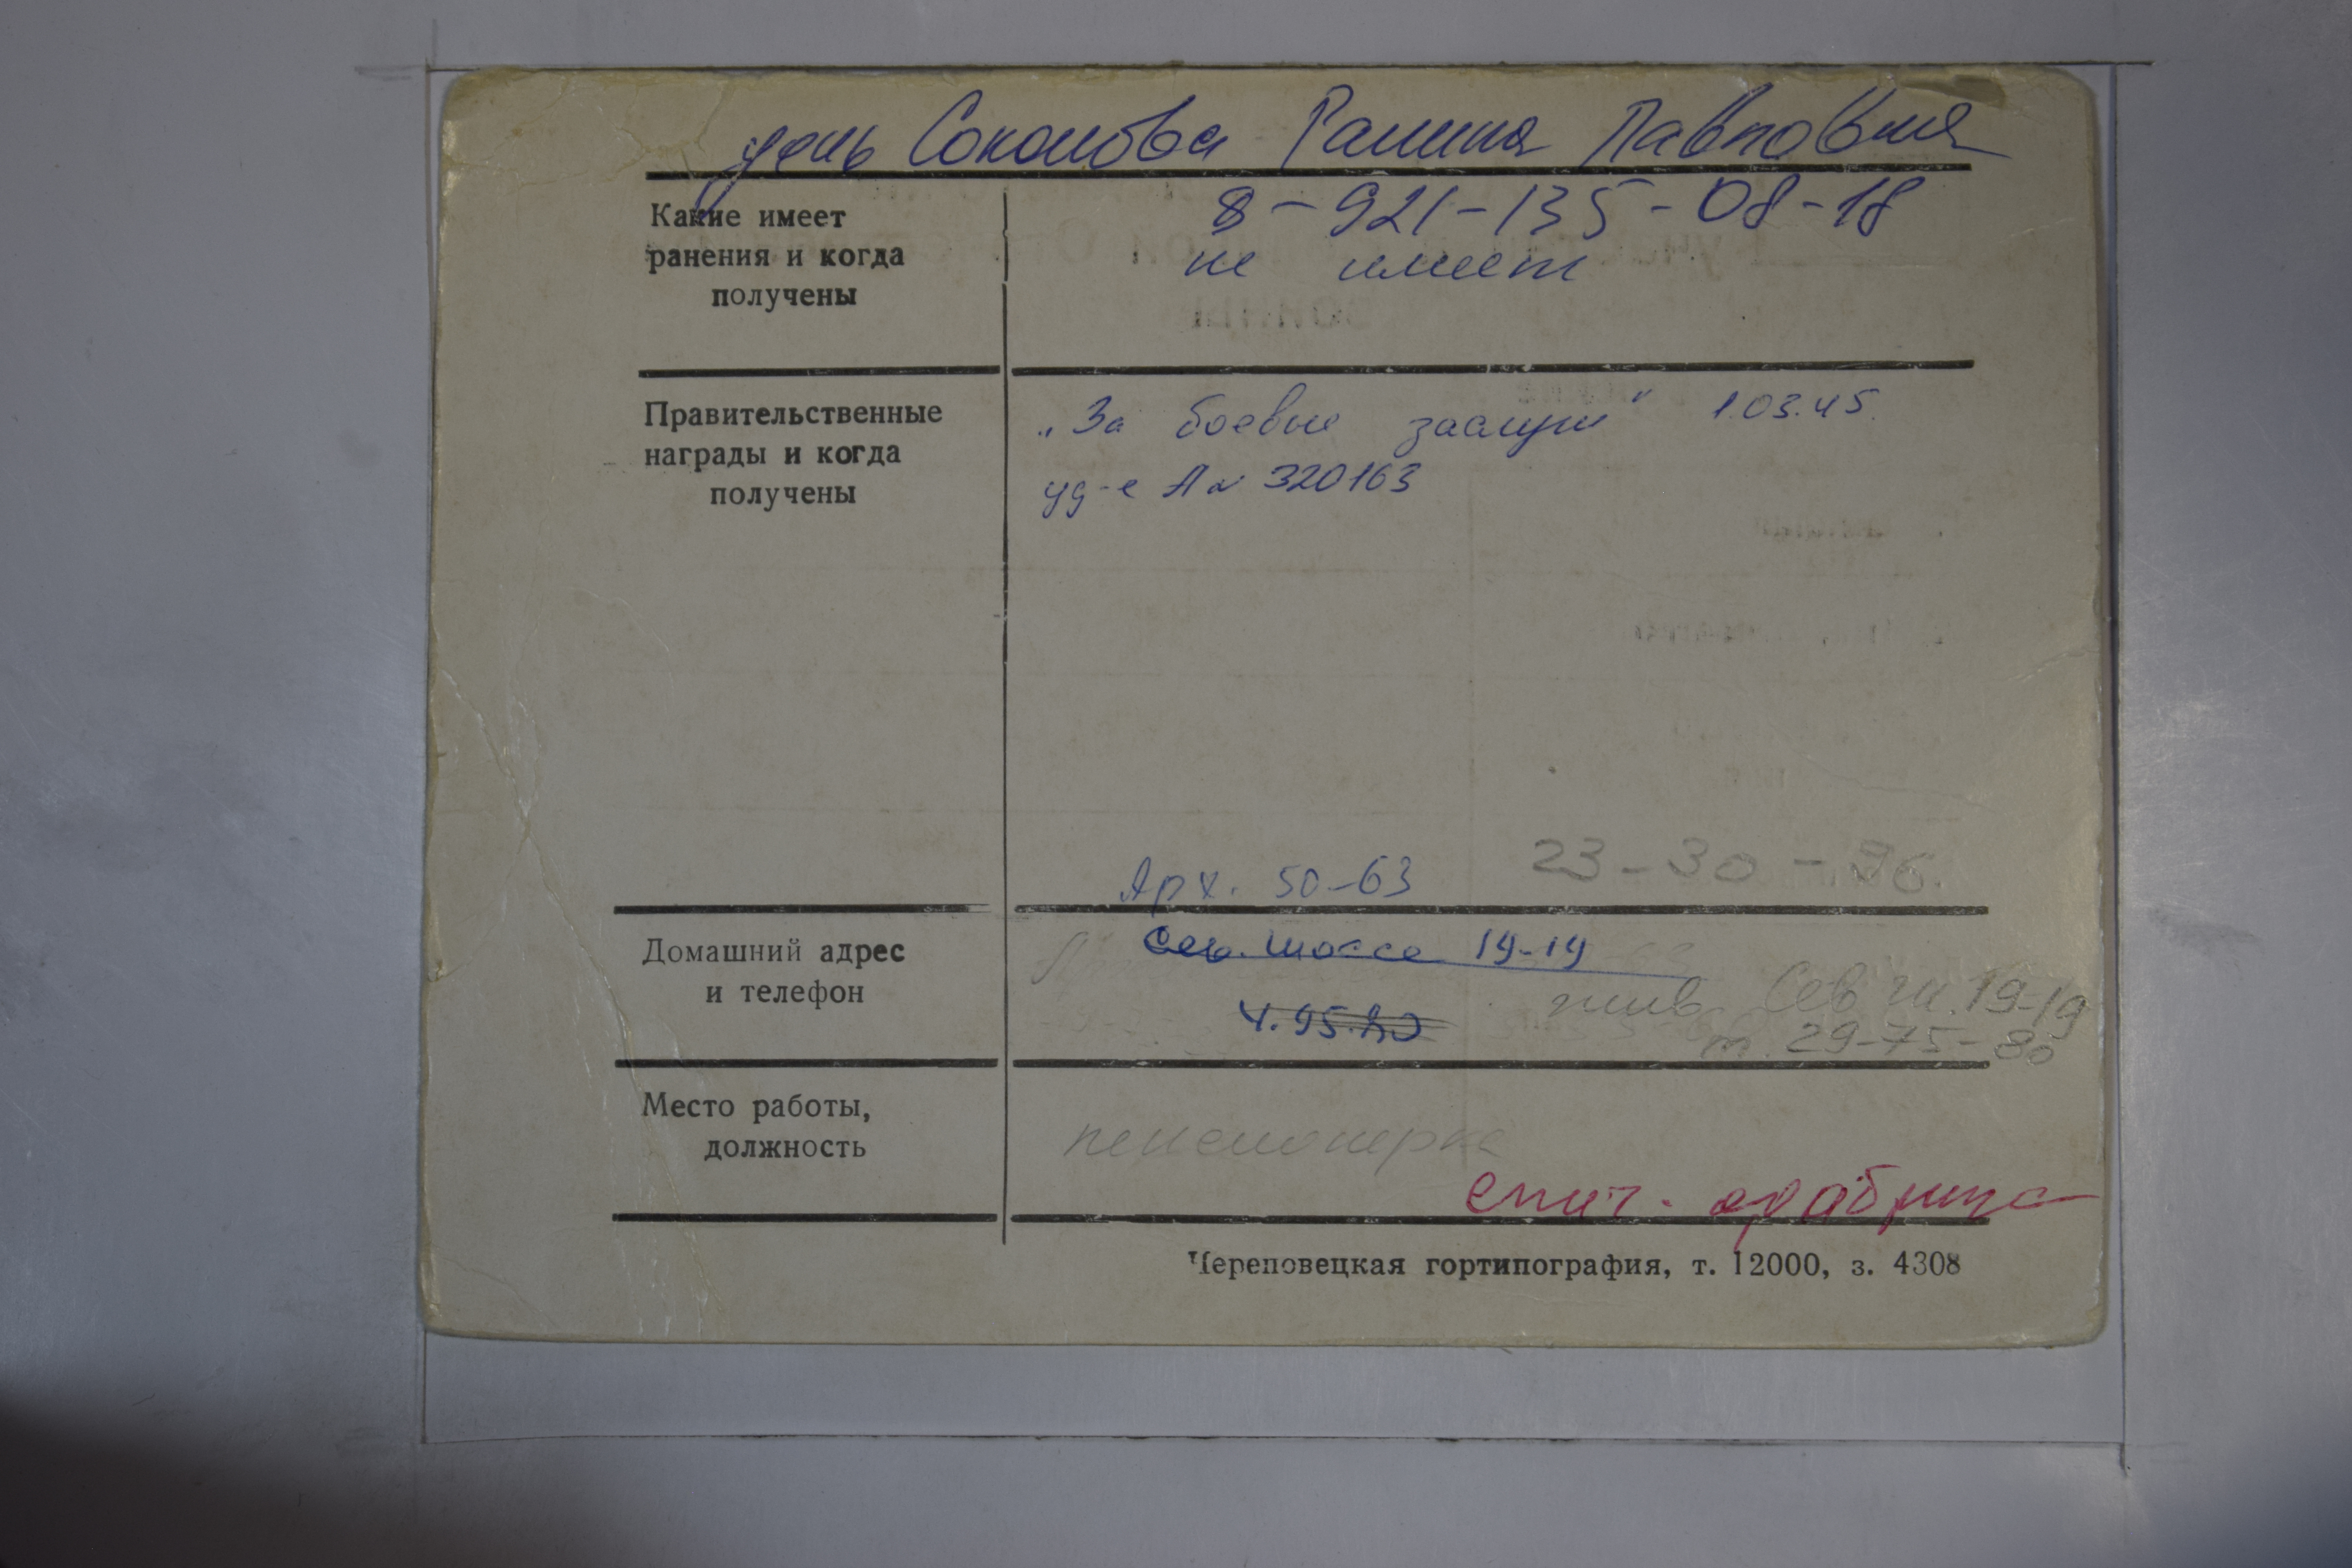 дочь Соколова Галина Павловна
8-921-135-08-18
Какие имеет
ранения и когда
получены
не имеет
Правительственные
награды и когда
получены
„За боевые заслуги" 1.03.45.
уд-е А № 320163
23-30-96.
Арх. 50-63
Домашний адрес
и телефон
Сев. шоссе 19-19
4.95.80
жив. Сев ш. 19-19
т. 29-75-80
Место работы,
должность
пенсионерка
спич. фабрика
Череповецкая гортипография, т. 12000, з. 4308